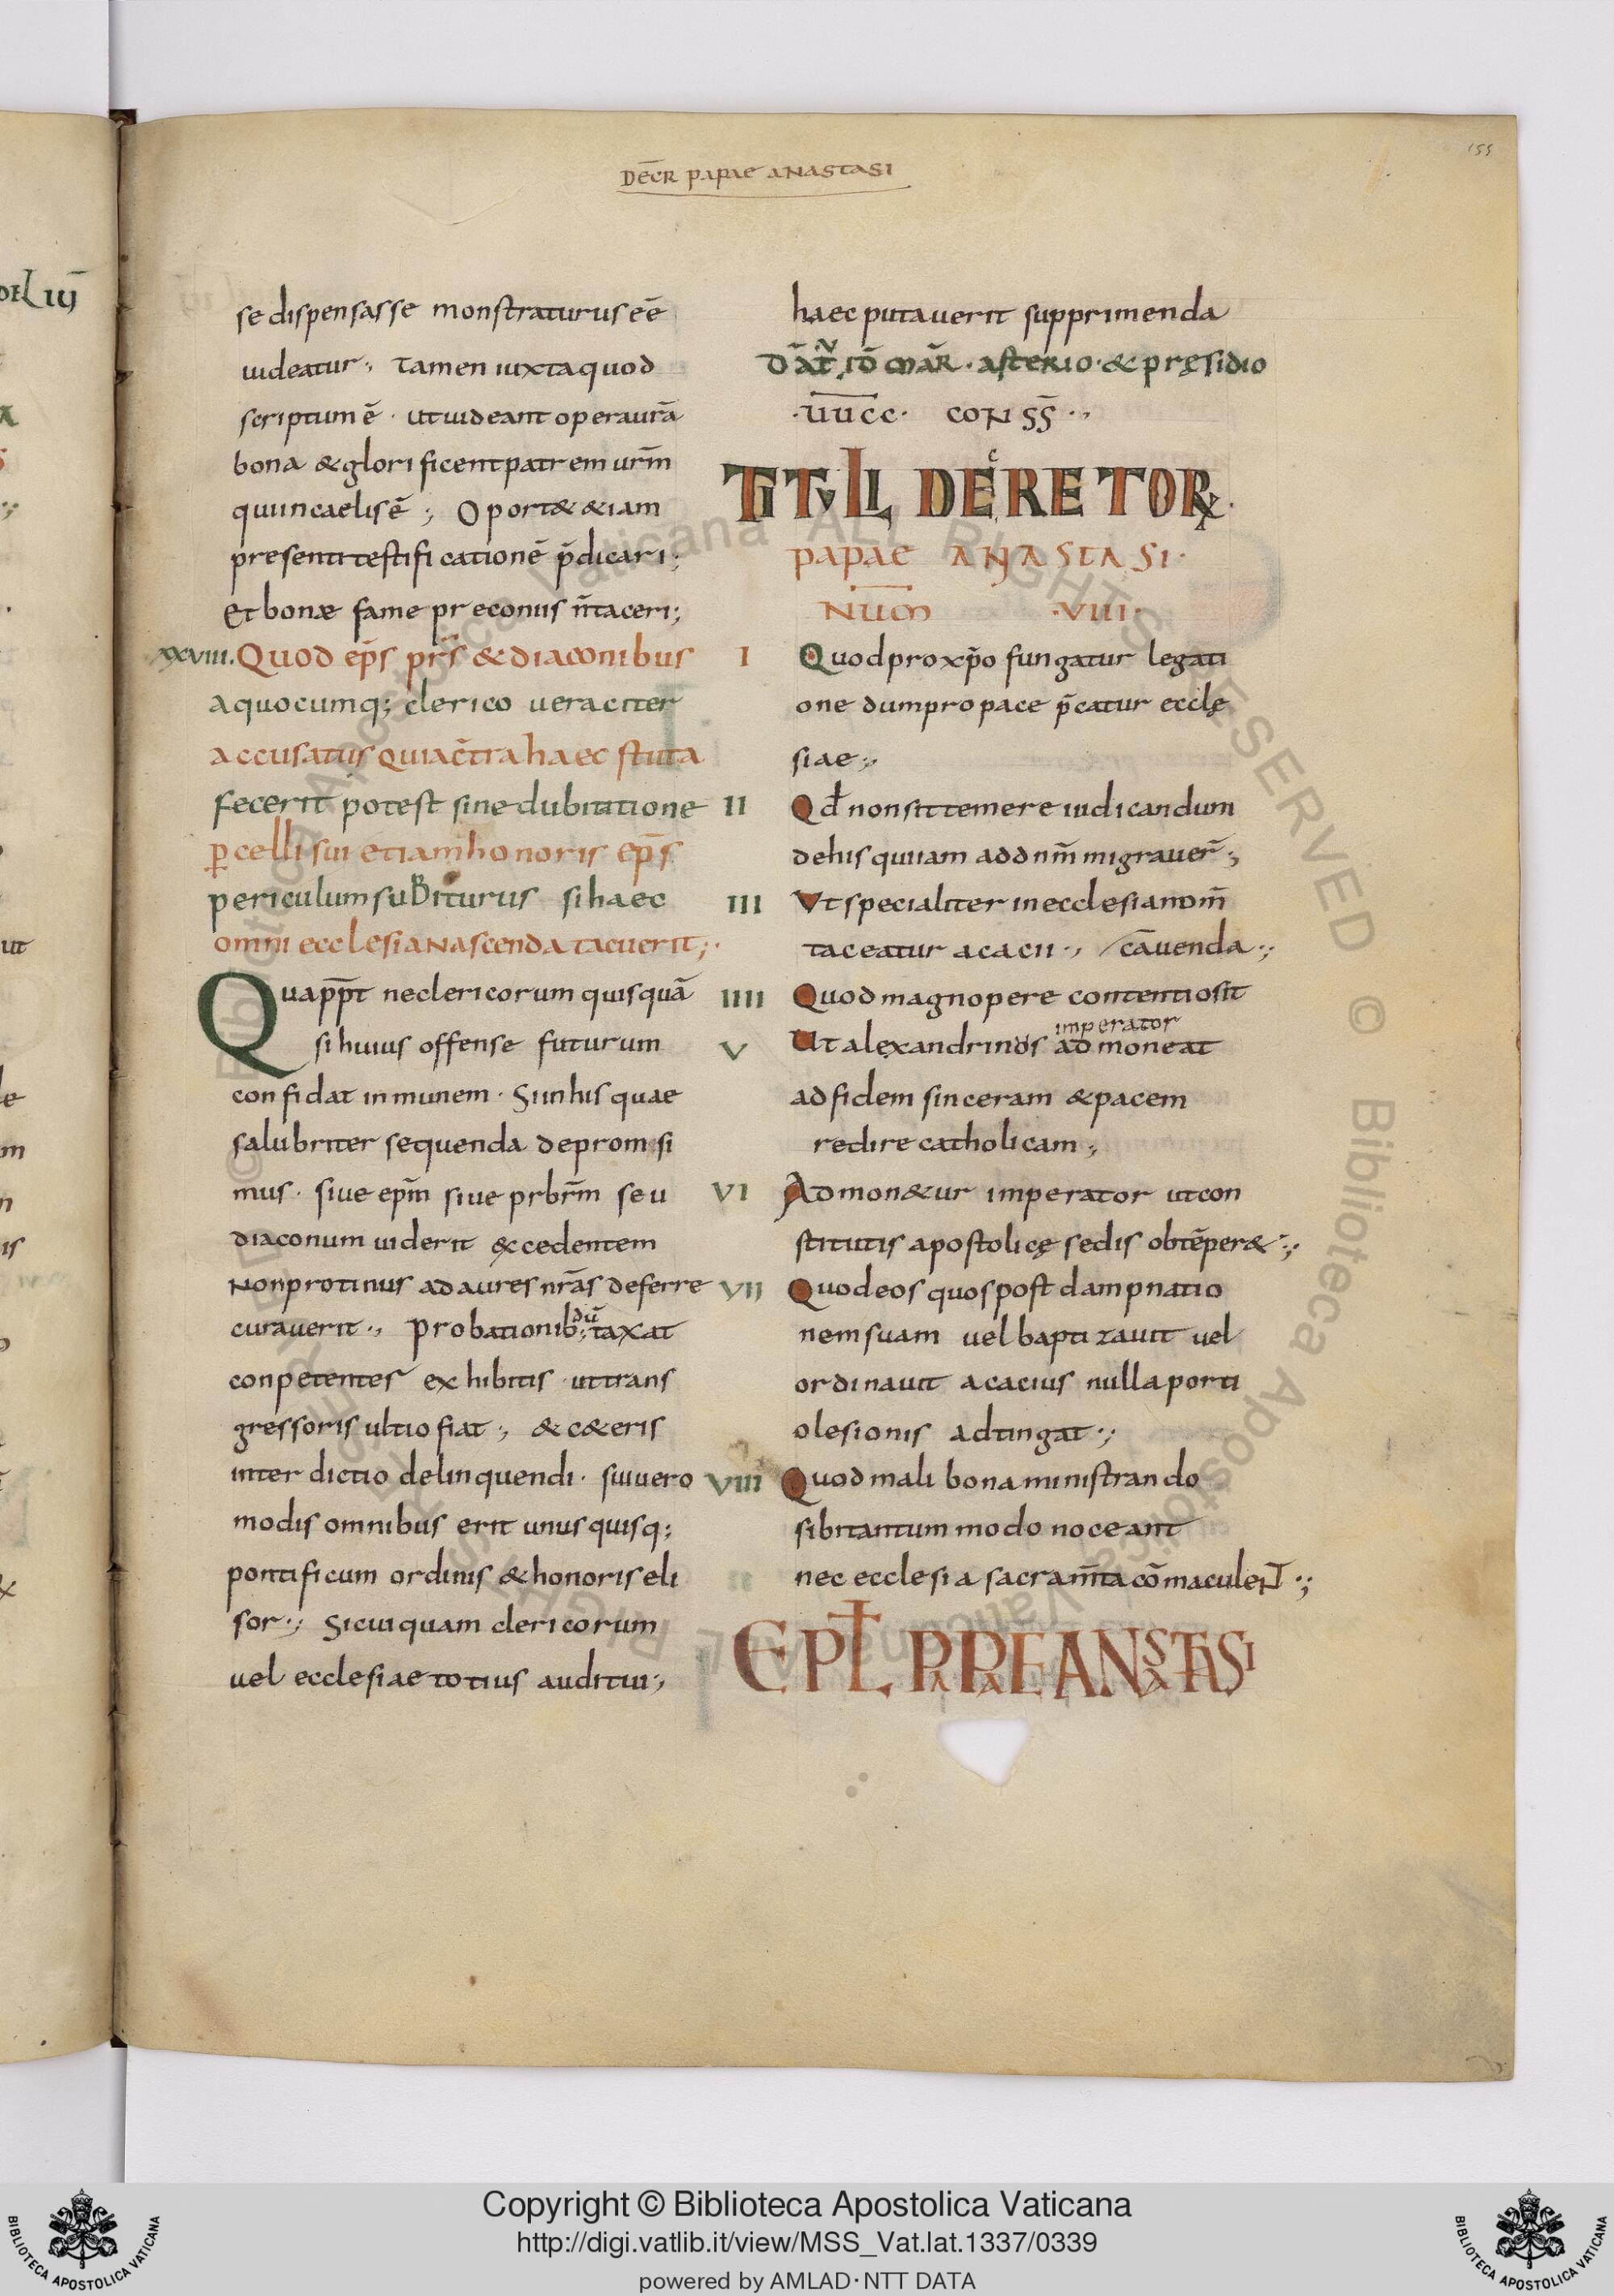 DEC̄R PAPAE ANASTASI
155
se dispensasse monstraturus eē
uideatur; Tamen iuxta quod
scriptum ē · ut uideant opera ur̄a
bona & glorificent patrem ur̄m
qui in caelis ē; Oport& &iam
presenti testificationē p̄dicari;
Et bonae fame preconiis n̄ taceri;
XXVIII. Quod ep̄s prs̄ & diaconibus
a quocumq; clerico ueraciter
accusatus quia c̄tra haec statuta
fecerit potest sine dubitatione
ꝑcelli sui etiam honoris ep̄s
periculum subiturus si haec
omni ecclesia nascenda tacuerit;
Quapp̄t ne clericorum quisquā
si huius offense futurum
confidat inmunem · Si in his quae
salubriter sequenda depromsi
mus · siue ep̄m siue prbr̄m seu
diaconum uiderit excedentem
Non protinus ad aures nr̄as deferre
curauerit; Probationib; dū taxat
conpetentes exhibitis · ut trans
gressoris ultio fiat; & c&eris
inter dictio delinquendi · sui uero
modis omnibus erit unus quisq;
pontificum ordinis & honoris eli
sor; Si cuiquam clericorum
uel ecclesiae totius auditui;
haec putauerit supprimenda
DAT̄ ID̄ MAR̄ · asterio · & pręsidio
·UUCC· CONSS̄·
TITVLI DECRETOR̄
PAPAE ANASTASI·
NUM̄ ·VIII·
I Quod pro xp̄o fungatur legati
one dum pro pace p̄catur ecclę
siae;
II Qd̄ non sit temere iudicandum
de his qui iam ad dnm̄ migrauer̄;
III Vt specialiter in ecclesia nom̄
taceatur acacii; / cāuenda;
IIII Quod magnopere contentio sit
V Ut alexandrinos imperator admoneat
ad fidem sinceram & pacem
redire catholicam;
VI Admon&ur imperator ut con
stitutis apostolicę sedis obtēper&;
VII Quod eos quos post dampnatio
nem suam uel baptizauit uel
ordinauit acacius nulla porti
o lesionis adtingat;
VIII Quod mali bona ministrando
sibi tantum modo noceant
nec ecclesia sacram̄ta cōmaculeNT;
EPĪL PAPAE ANASTASI
Copyright © Biblioteca Apostolica Vaticana
http://digi.vatlib.it/view/MSS_Vat.lat.1337/0339
powered by AMLAD·NTT DATA
BIBLIOTECA APOSTOLICA VATICANA
BIBLIOTECA APOSTOLICA VATICANA